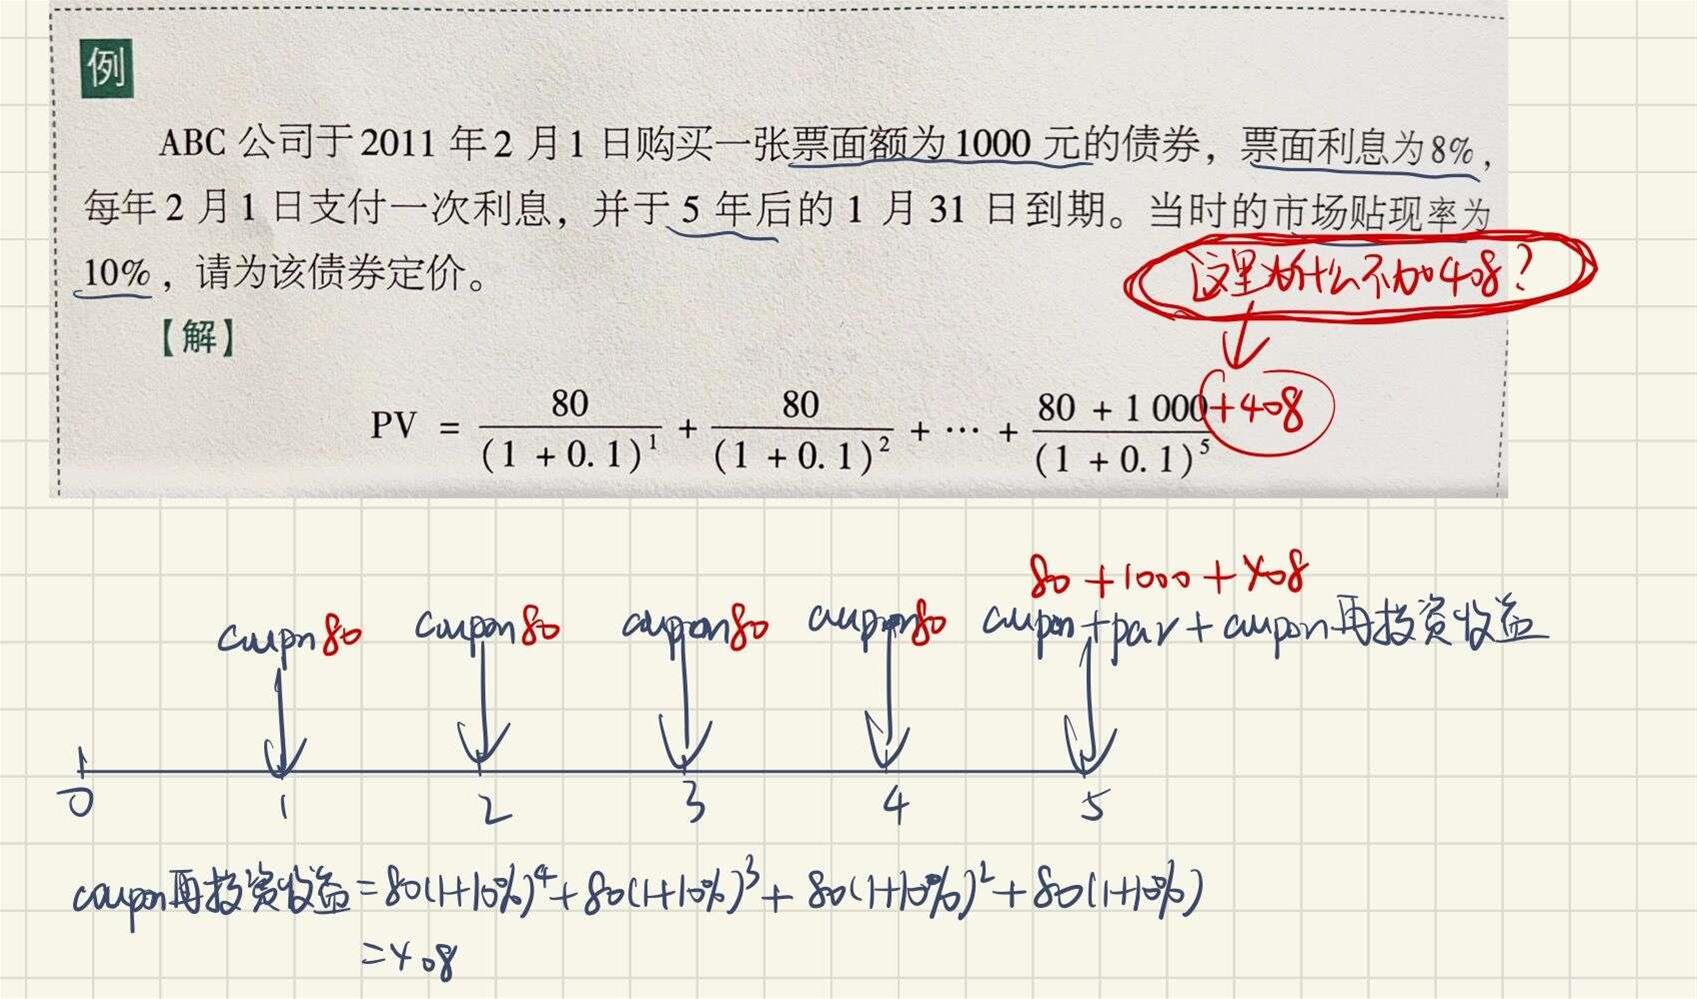 例
ABC 公司于 2011 年 2 月 1 日购买一张票面额为 1000 元的债券，票面利息为 8%，
每年 2 月 1 日支付一次利息，并于 5 年后的 1 月 31 日到期。当时的市场贴现率为
10%，请为该债券定价。
这里为什么不加408？
【解】
PV = 80/(1 + 0.1)^1 + 80/(1 + 0.1)^2 + ⋯ + (80 + 1 000+408)/(1 + 0.1)^5
80 + 1000 + 408
coupn 80 coupon 80 coupon 80 coupon 80 coupon + par + coupon 再投资收益
0 1 2 3 4 5
coupon再投资收益 = 80(1+10%)^4 + 80(1+10%)^3 + 80(1+10%)^2 + 80(1+10%)
= 408